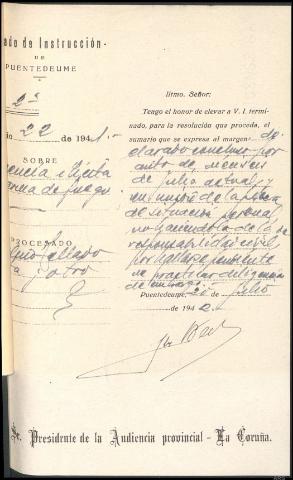 ado de Instrucción
DE
PUENTEDEUME
2º
io 22 de 1941.-
SOBRE
encia ilícita
arma de fuego
PROCESADO
llado
y otro
Iltmo. Señor:
Tengo el honor de elevar a V. I. termi-
nado, para la resolución que proceda, el
sumario que se expresa al margen, de-
clarado concluso por
auto de
de julio actual, y
en unión de la pieza
de situación personal
no haciéndolo de la de
responsabilidad civil
por hallarse pendiente
de practicar diligencias
Puentedeume, 20 de julio
de 1942.
Sr. Presidente de la Audiencia provincial - La Coruña.